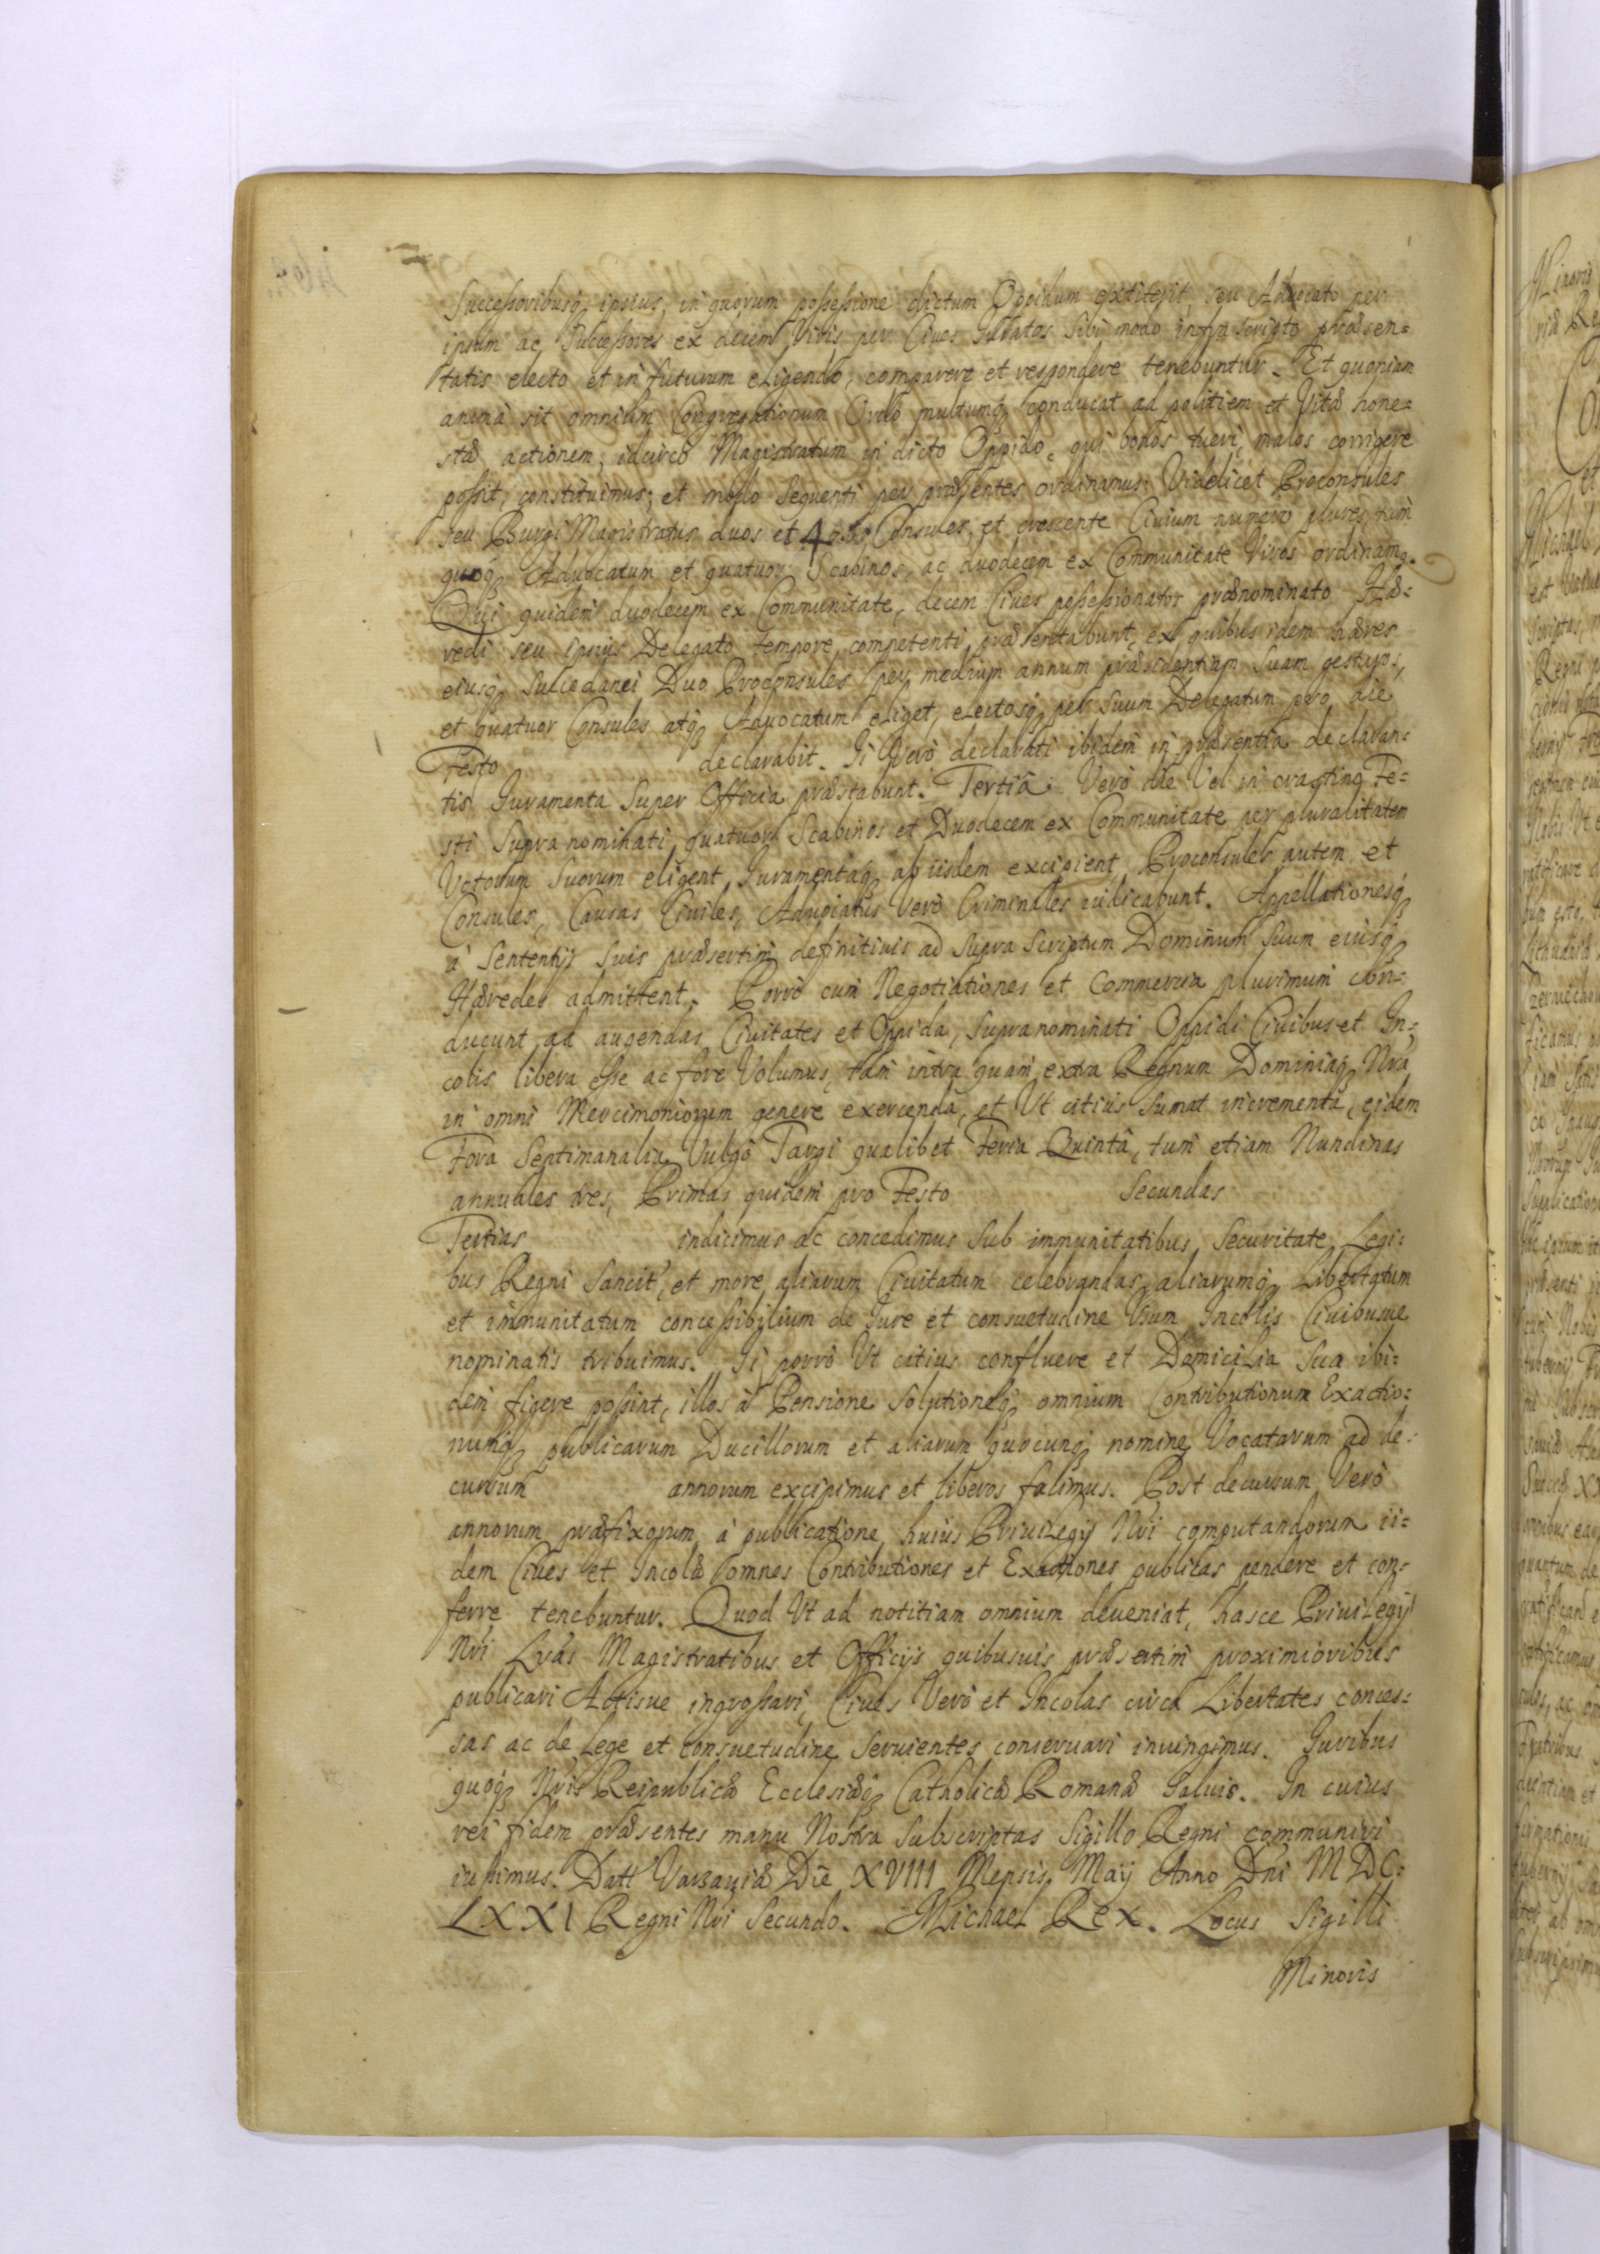 Successoribusq, ipsius, in quorum possessione dictum Oppidum extiterit, seu Aduocato per
ipsum ac Successores ex decem Viris per Ciues Iuratos Sibi modo infrascripto præsen=
tatis electo et in futurum eligendo, comparere et respondere tenebuntur. Et quoniam
anima sit omnium Congregationum Ordo multumq, conducat ad politiem et Vitæ hone=
stæ actionem, idcirco Magistratum in dicto Oppido, qui bonos tueri, malos corrigere
possit, constituimus; et modo sequenti per præsentes ordinamus. Videlicet Proconsules
seu Burgi Magistratus duos et Consules, et crescente Ciuium numero plures tum
quoq, Aduocatum et quatuor Scabinos, ac duodecem ex Communitate Viros ordinamq.
Qui quidem duodecem ex Communitate, decem Ciues possessionatos prænominato Hæ=
redi seu ipsius Delegato tempore competenti præsentabunt, ex quibus idem hæres
eiusq, Succedanei Duo Proconsules per medium annum præsidentiam Suam gesturos,
et quatuor Consules atq, Aduocatum eliget, electosq, per Suum Delegatum pro die
Festo declarabit. Ii Verò declarati ibidem in præsentia declaran=
tis Iuramenta Super Officia præstabunt. Tertiâ Verò die Vel in crastino Fe=
sti Supra nominati quatuor Scabinos et Duodecem ex Communitate per pluralitatem
Votorum Suorum eligent, Iuramentaq, ab iisdem excipient, Proconsules autem et
Consules, Causas Ciuiles, Aduocatus Verò Criminales iudicabunt. Appellationesq,
à Sententijs Suis præsertim definitiuis ad Supra Scriptum Dominum Suum eiusq,
Hæredes admittent. Porrò cum Negotiationes et Commercia plurimum con=
ducunt ad augendas Ciuitates et Oppida, Supranominati Oppidi Ciuibus et In=
colis libera esse ac fore Volumus, tam intra quam extra Regnum Dominiaq, Nra
in omni Mercimoniorum genere exercenda, et Vt citius Sumat incrementa, eidem
Fora Septimanalia Vulgò Targi qualibet Feria Quintâ, tum etiam Nundinas
annuales tres, Primas quidem pro Festo Secundas
Tertias indicimus ac concedimus Sub immunitatibus, Securitate Legi=
bus Regni Sancit, et more aliarum Ciuitatum celebrandas, aliarumq, Libertatum
et immunitatum concessibilium de Iure et consuetudine Vsum Incolis Ciuibusue
nominatis tribuimus. Ii porrò Vt citius confluere et Domicilia Sua ibi=
dem figere possint, illos à Pensione Solutioneq, omnium Contributionum Exactio=
numq, publicarum Ducillorum et aliarum quocunq, nomine Vocatarum ad de=
cursum annorum excipimus et liberos facimus. Post decursum Verò
annorum præfixorum à publicatione huius Priuilegij Nri computandorum ii=
dem Ciues et Incolæ omnes Contributiones et Exactiones publicas pendere et con=
ferre tenebuntur. Quod Vt ad notitiam omnium deueniat, hasce Priuilegij
Nri Lras Magistratibus et Officijs quibusuis præsertim proximioribus
publicari Actisue ingrossari, Ciues Verò et Incolas circa Libertates conces=
sas ac de Lege et consuetudine Seruientes conseruari iniungimus. Iuribus
quoq, Nris Reipublicæ Ecclesiæq, Catholicæ Romanæ Saluis. In cuius
rei fidem præsentes manu Nostra Subscriptas Sigillo Regni communiri
iussimus. Datt Varsauiæ Die XVIII Mensis Maij Anno Dni MDC=
LXXI Regni Nri Secundo. Michael Rex. Locus Sigilli
Minoris